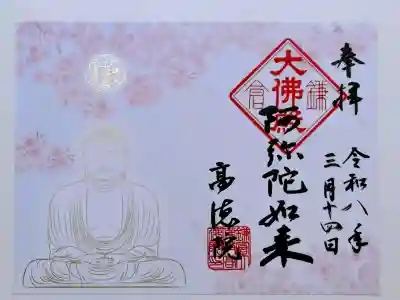 奉拝
令和八年
三月十四日
大佛殿
鎌倉
阿弥陀如来
高徳院